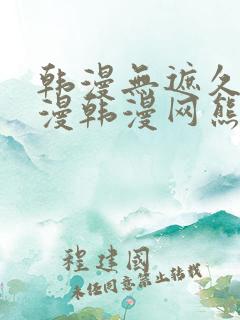 韩漫無遮久
漫韩漫网熊
程建國
未经同意禁止转载